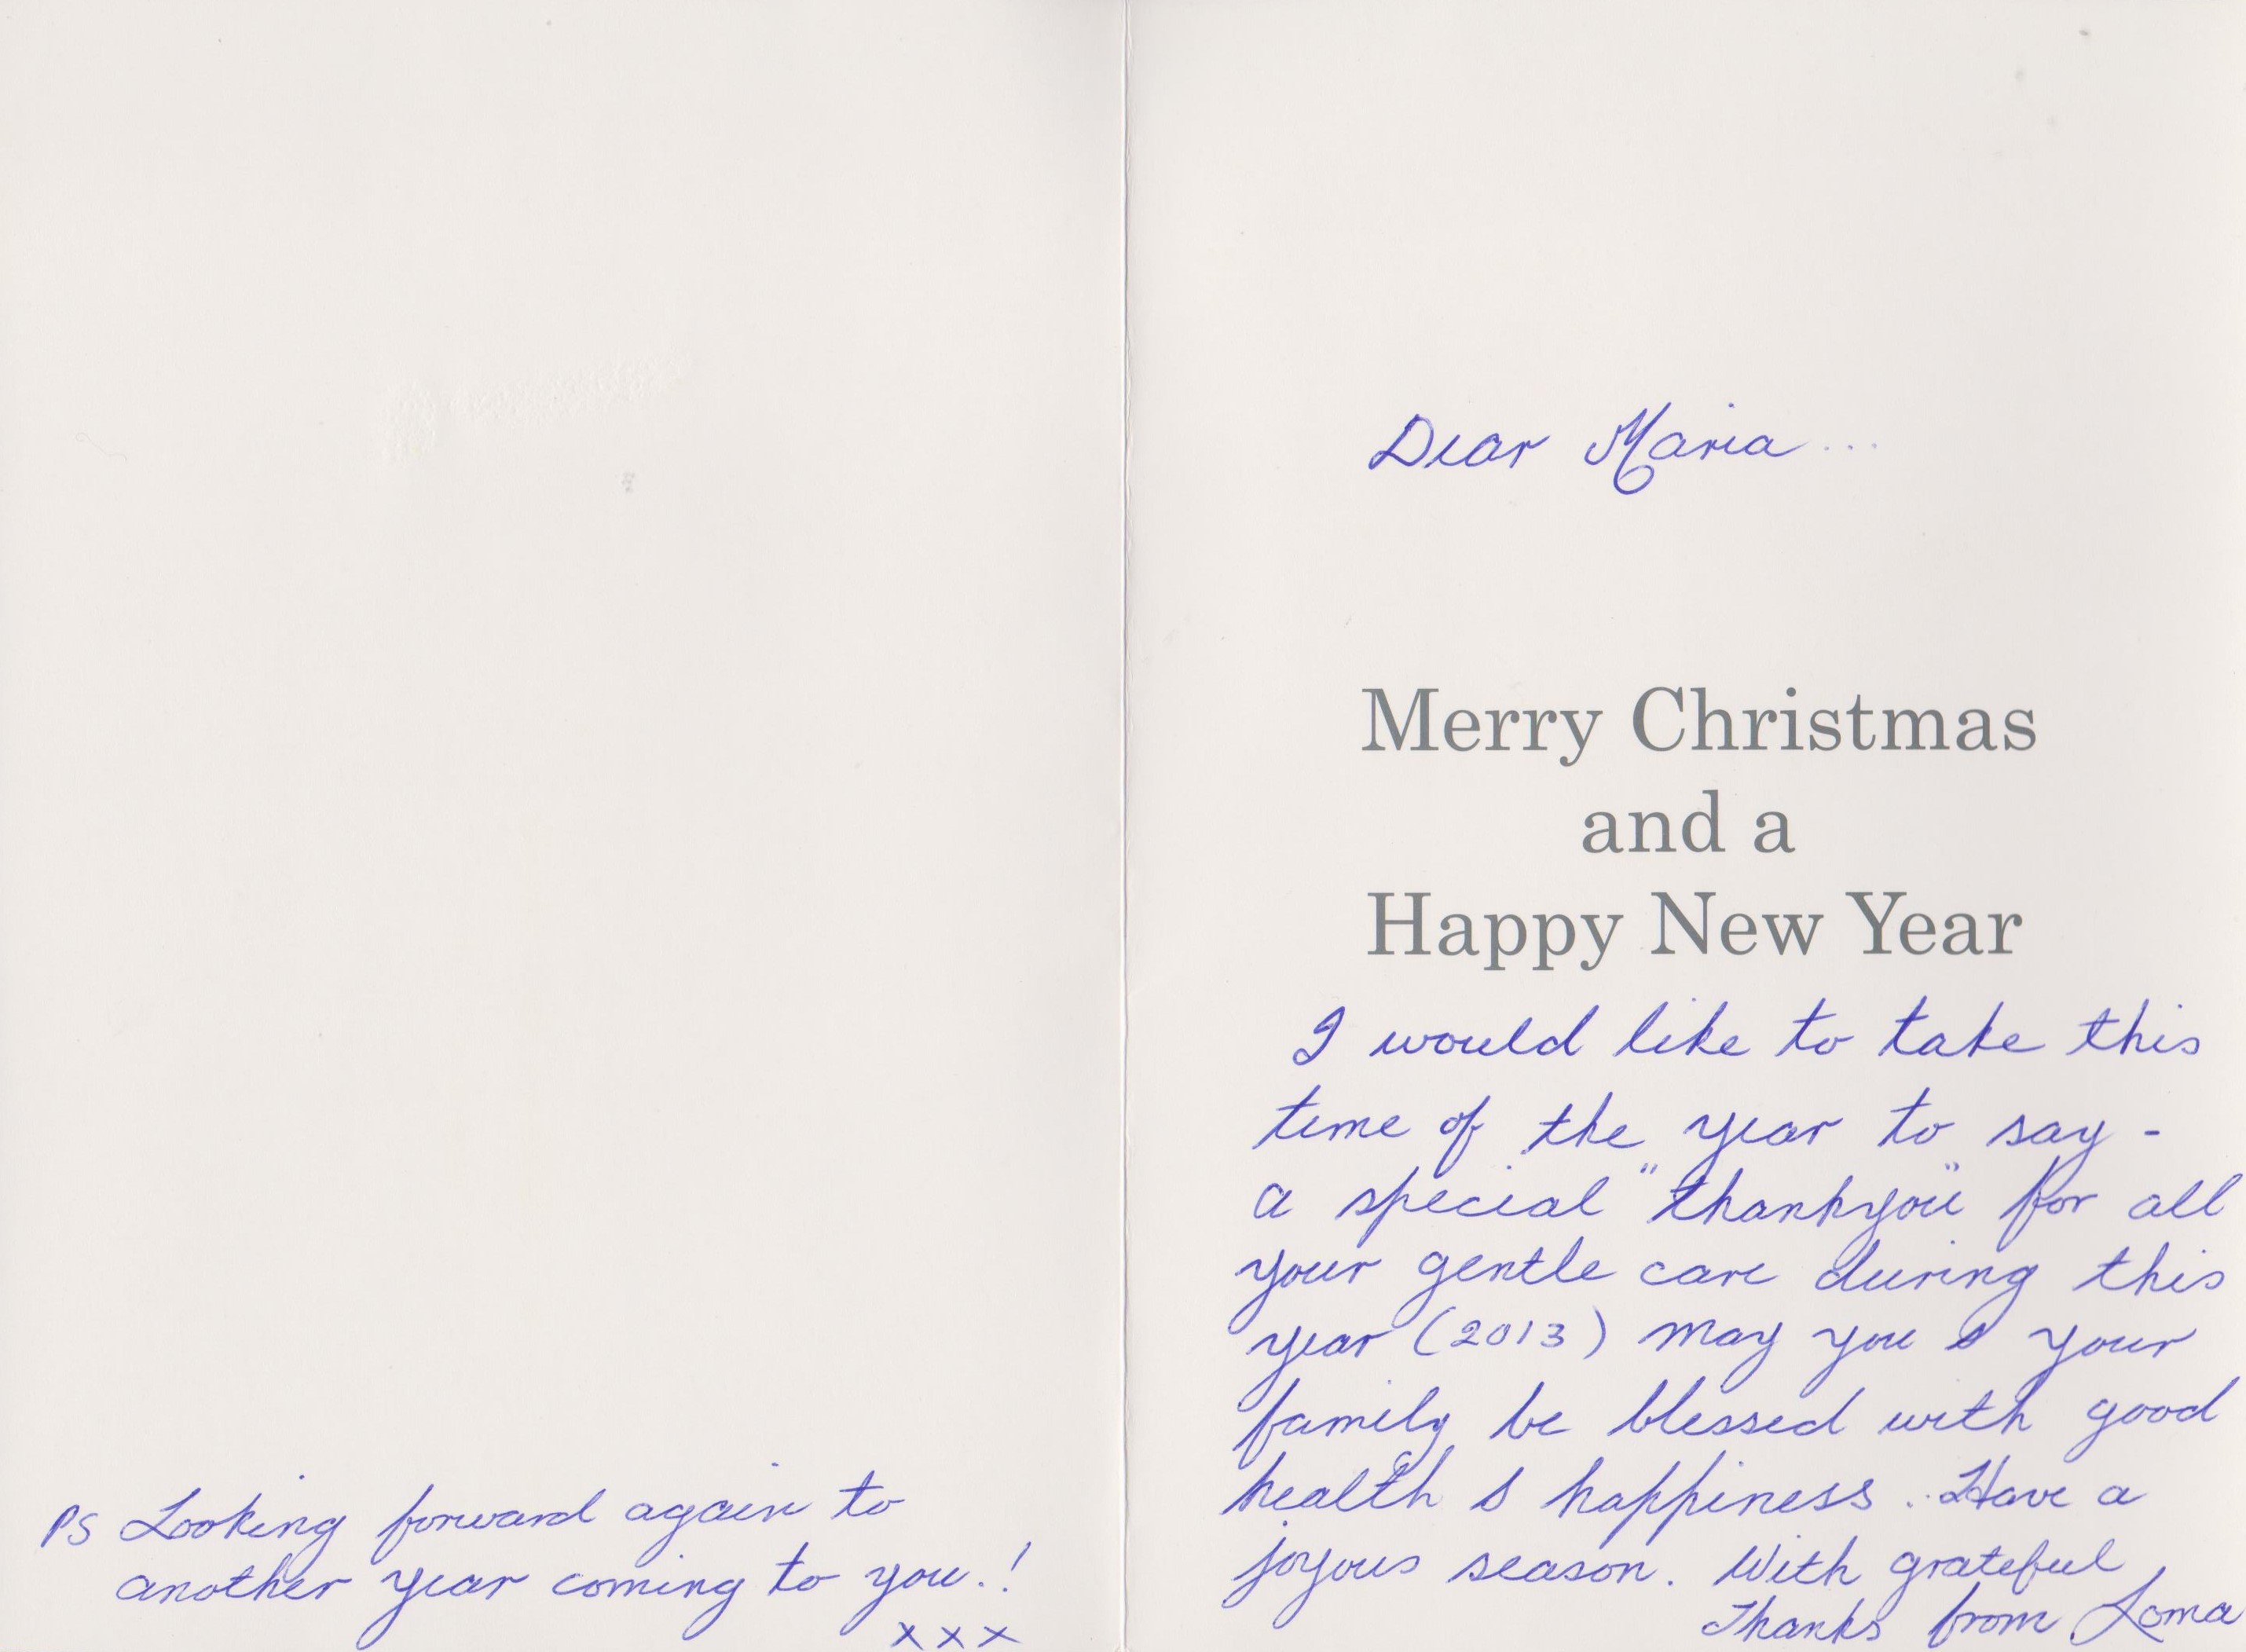 Dear Maria...
Merry Christmas
and a
Happy New Year
I would like to take this
time of the year to say -
a special "thankyou" for all
your gentle care during this
year (2013) may you & your
family be blessed with good
health & happiness. Have a
joyous season. With grateful
Thanks from Loma
PS Looking forward again to
another year coming to you.!
xxx